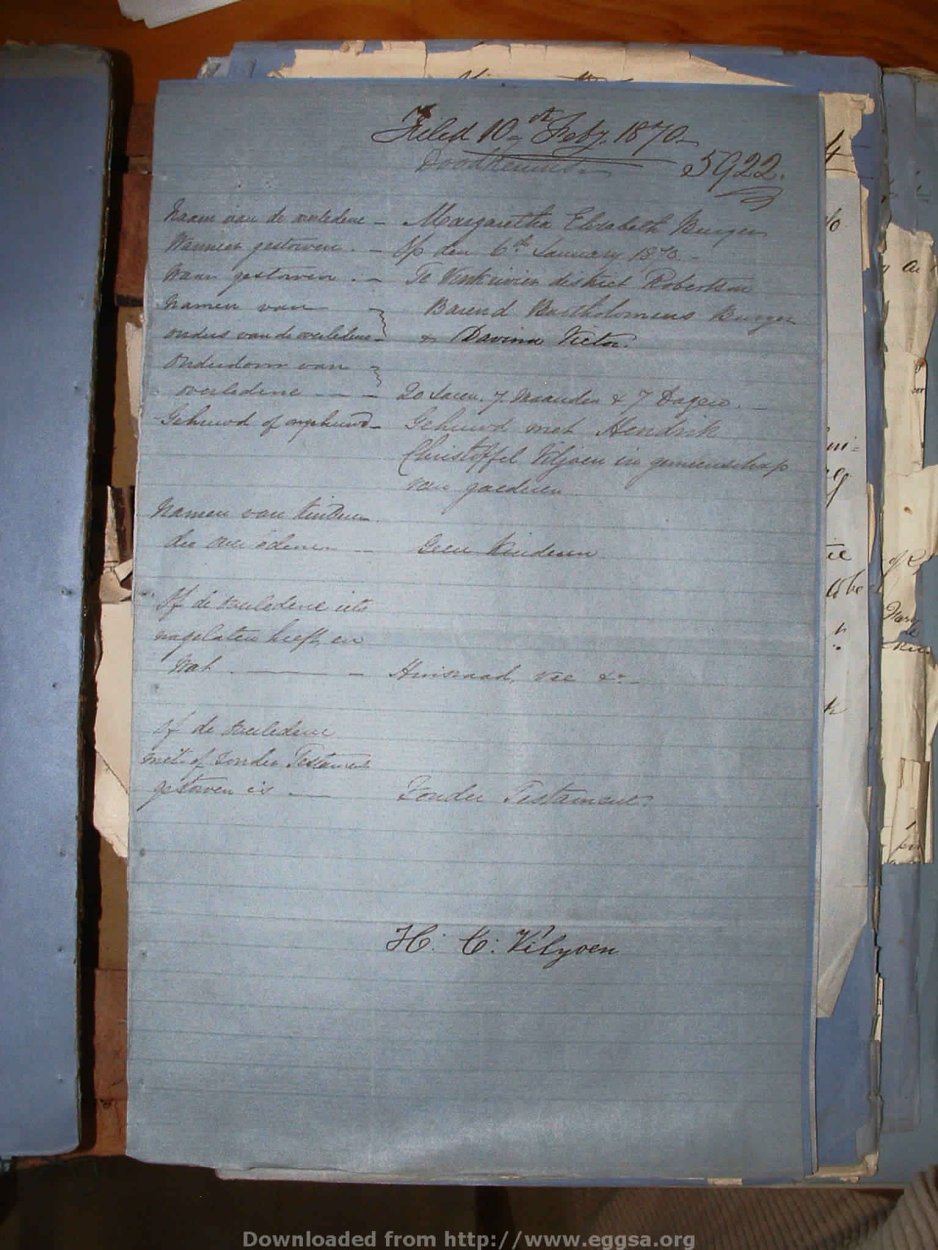 Filed 10th Feby. 1870
5922.
Naam van de overledene - Margaretha Elizabeth Burger
Wanneer gestorven. - Op den 6th January 1870. -
Waar gestorven. - Te Vinkrivier district Robertson
Namen van Barend Bartholomeus Burger
ouders van de overledene - & Davina Victor.
Ouderdom van
overledene - - - 20 Jaren, 7 Maanden & 7 Dagen. -
Gehuwd of ongehuwd - Gehuwd met Hendrik
Christoffel Viljoen in gemeenschap
van goederen
Namen van kinderen
der overledenen - Geen Kinderen
Of de overledene iets
nagelaten heeft, en
Wat - Huisraad, Vee &c -
Of de overledene
met of zonder Testament
gestorven is - Zonder Testament.
H: C: Vilyoen
Downloaded from http://www.eggsa.org